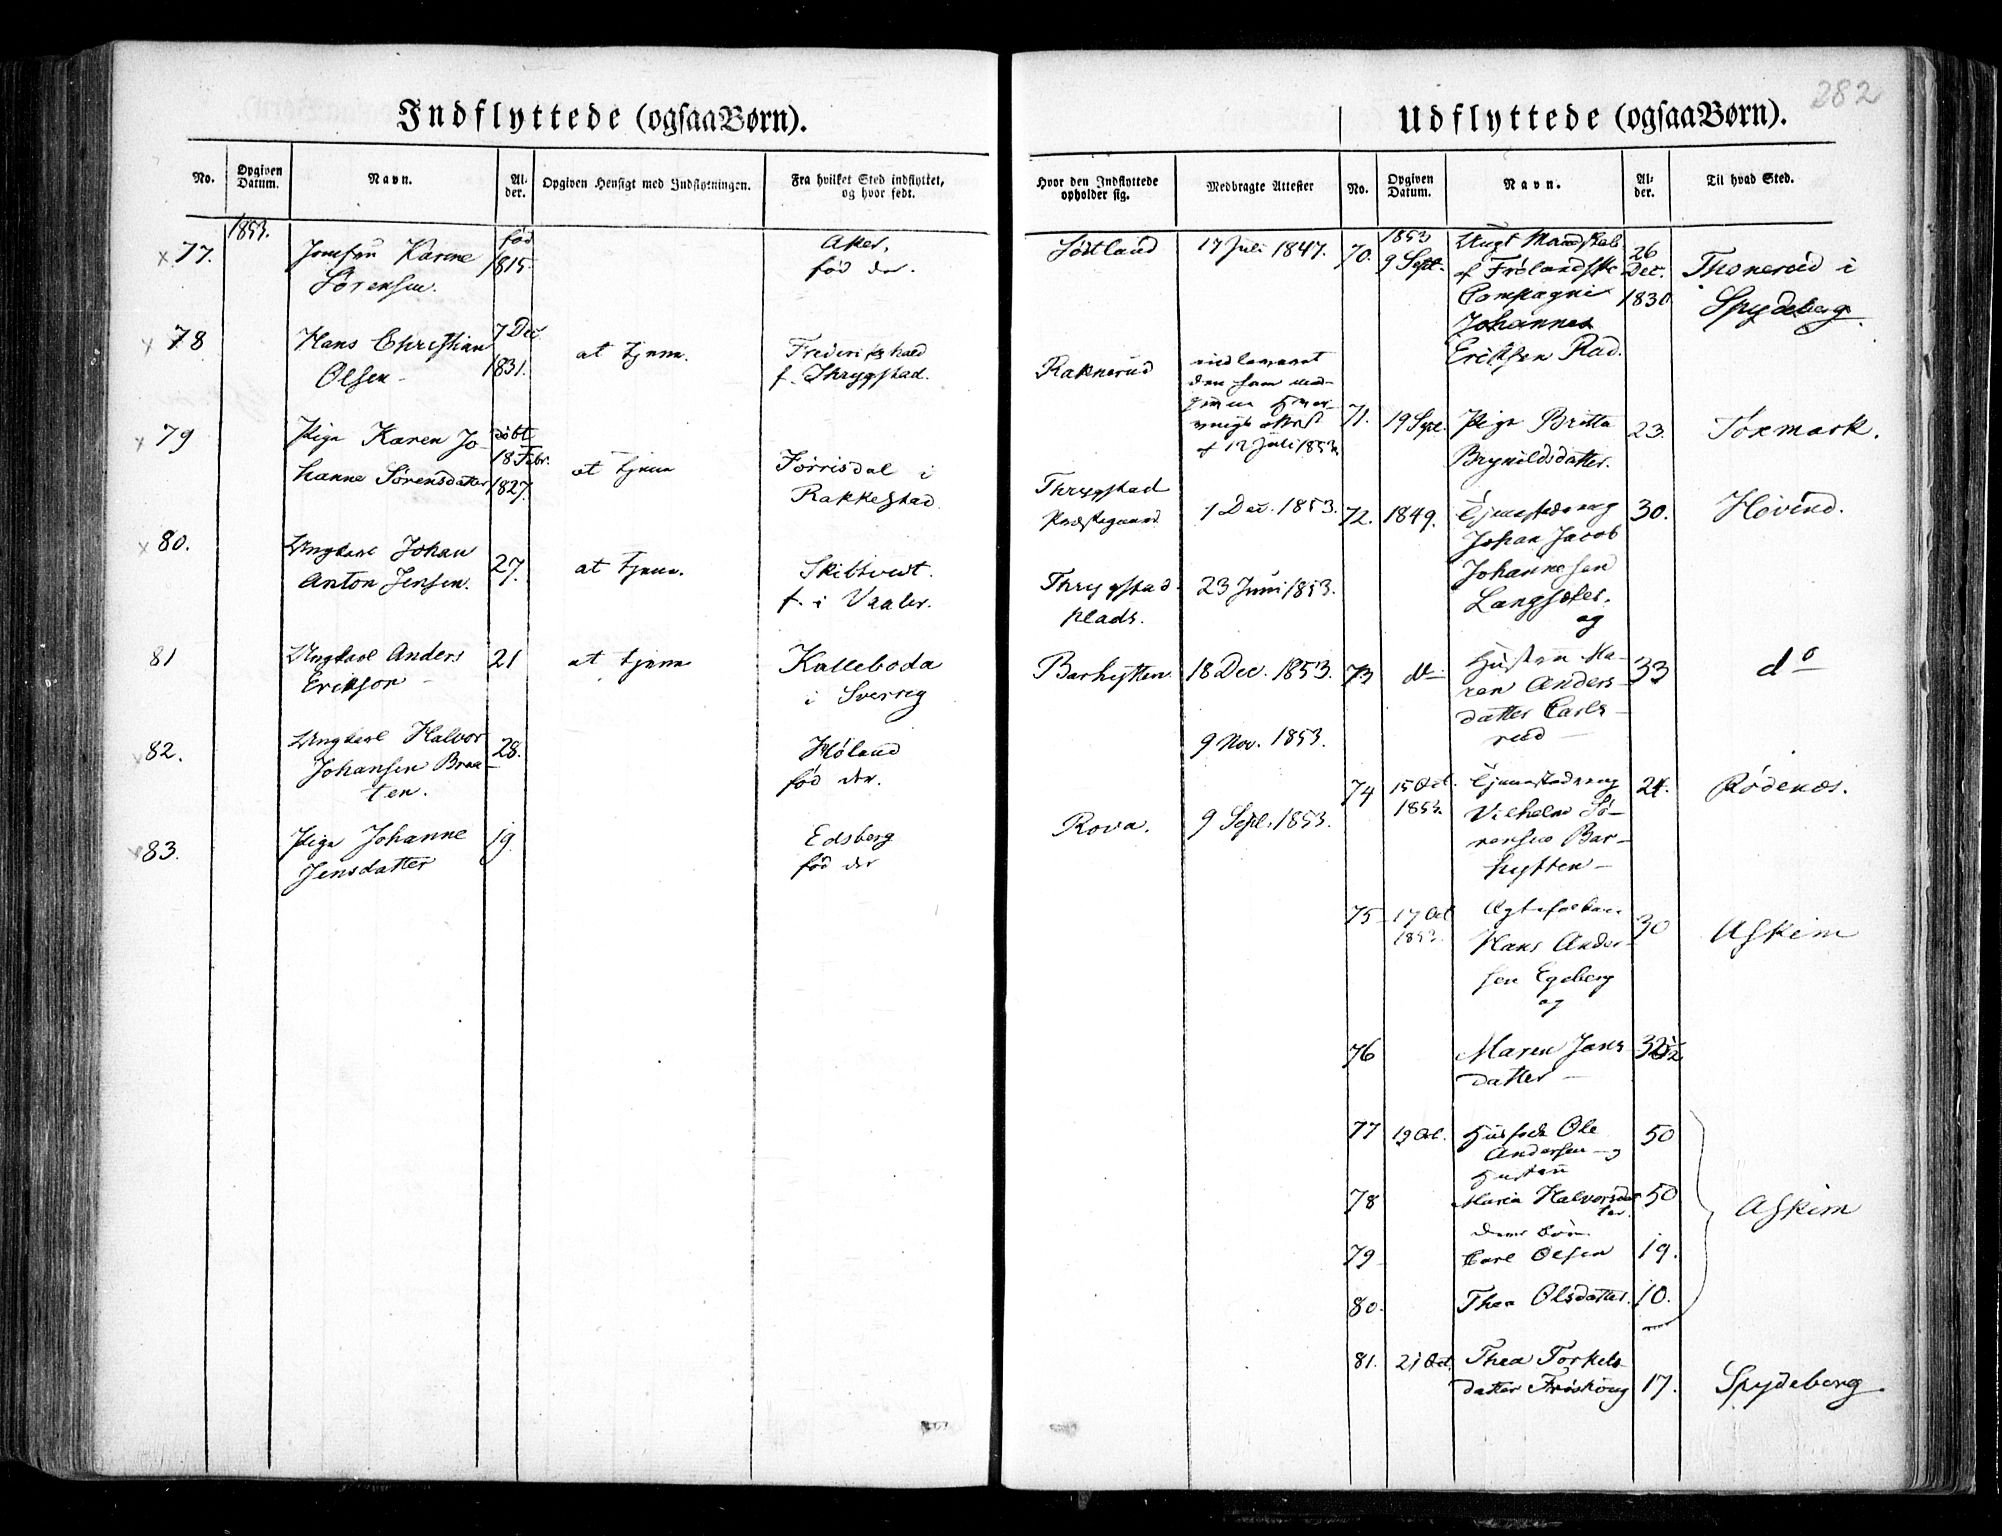 282
Indflyttede (ogsaa Børn).
No.
Opgiven Datum.
Navn.
Al-
der.
Opgiven Hensigt med Indflytningen.
Fra hvilket Sted indflyttet,
og hvor født.
1853.
77.
Karine
Sørensen.
født
1815.
Aker,
fød der.
78
Hans Christian
Olsen
7 Dec
1831.
at tjene.
Frederikshald
f. Thrygstad.
79
Pige Karen Jo-
hanne Sørensdatter
døbt
18 Febr.
1827.
at tjene
i
Rakkestad
80.
Ungkarl Johan
Anton Jensen.
27.
at tjene.
Skiptvedt.
f. i Vaaler.
81
Ungkarl Anders
Erikson
21
at tjene
Kalleboda
i Sverrig
82.
Ungkarl Halvor
Johansen Braa-
ten.
28.
Høland
fød der.
83.
Pige Johanne
Jensdatter
19
Edsberg
fød der
Hvor den Indflyttede
opholder sig.
Medbragte Attester
17 Juli 1847.
Raknerud
12 Juli 1853
Thrygstad
Præstegaard
1 Dec. 1853.
Thrygstad
plads.
23 Juni 1853.
Barhytten
18 Dec. 1853.
9 Nov. 1853.
Rova.
9 Sept. 1853.
Udflyttede (ogsaa Børn).
No.
Opgiven
Datum.
Navn.
Al-
der.
Til hvad Sted.
70.
1853
9 Sept.
Ungt Mandskab
af Frølandske
Compagnie
Johannes
Eriksen Rud.
26
Dec.
1830
Thonerud i
Spydeberg.
71.
19 Sept.
Pige Britta
Brynildsdatter.
23.
Tormark.
72.
1849.
Tjenestedreng
Johan Jacob
Johannesen
og
30.
Hovind.
73
do
Hustru Ma-
ren Anders-
datter Carls-
rud
33
do
74
15 Oct.
1853.
Tjenestedreng
Vilhelm Sø-
rensen Bar-
hytten
24.
Rødenæs.
75
17 Oct
1853.
Ægtefolkene
Hans Ander-
sen Egeberg
og
30
Askim
76
Maren Jans
datter
32
77
19 Oct.
Ole
Andersen og
Hustru
50
78
Maria Halvorsdat
ter.
50
deres Børn
79
Carl Olsen
19.
80.
Thea Olsdatter.
10.
Askim
81.
21 Oct.
Thea Torkels-
datter
17.
Spydeberg.